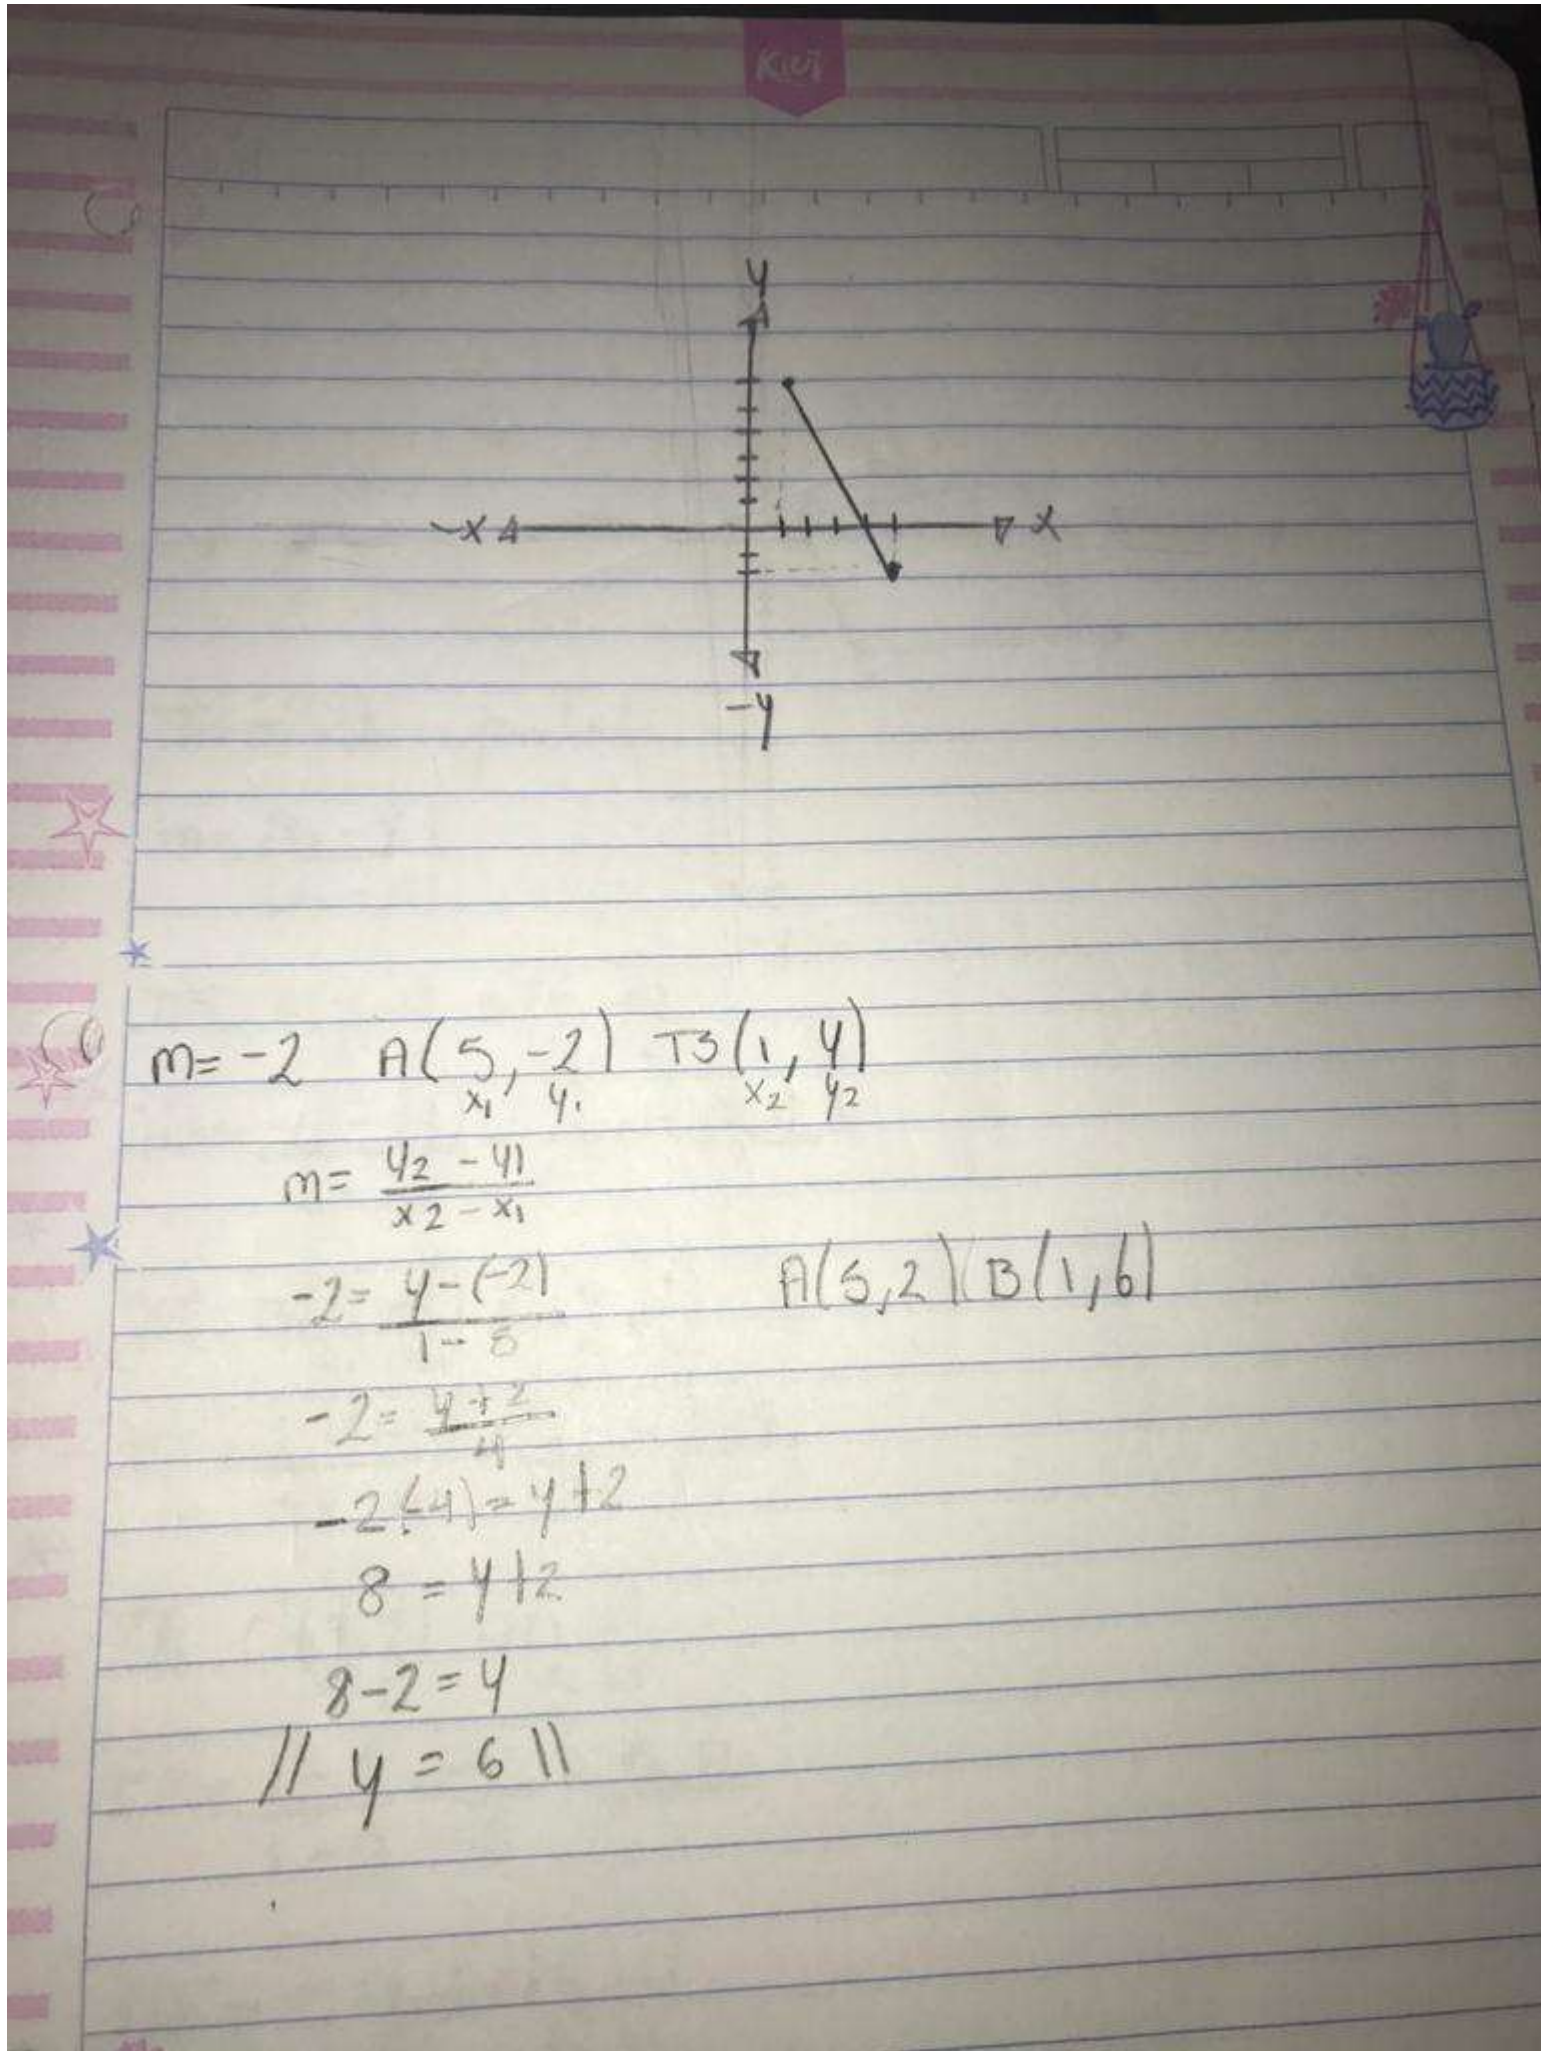 Kiwi
y
-x x
-y
m = -2 A(5, -2) B(1, y)
x1 y1 x2 y2
m = y2 - y1
x2 - x1
-2 = y - (-2) A(5,2) B(1,6)
1 - 5
-2 = y + 2
-4
-2(-4) = y + 2
8 = y + 2
8 - 2 = y
// y = 6 \\